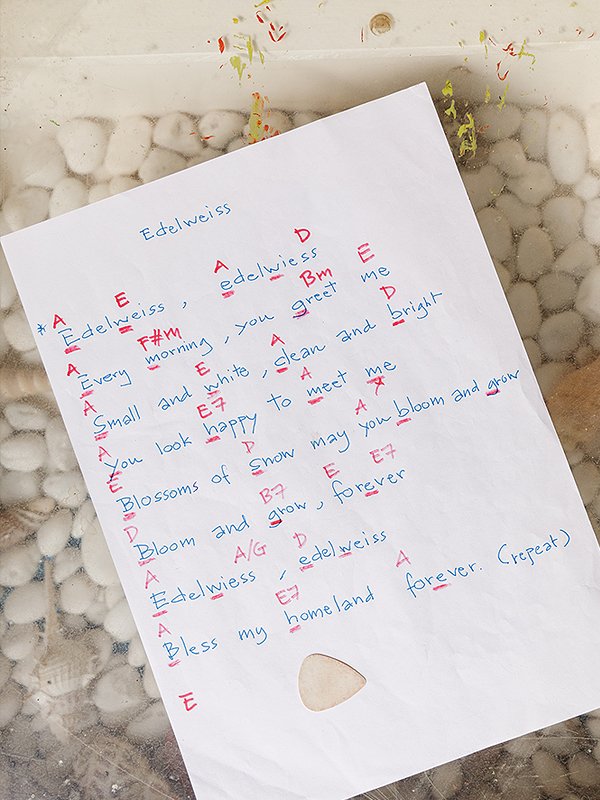 Edelweiss
A E A D
* Edelweiss , edelwiess
A F#m Bm E
Every morning , you greet me
A E A D
Small and white , clean and bright
A E7 A
You look happy to meet me
E D A
Blossoms of snow may you bloom and grow
D B7 E E7
Bloom and grow , forever
A A/G D
Edelwiess , edelweiss
A E7 A
Bless my homeland forever. (repeat)
E